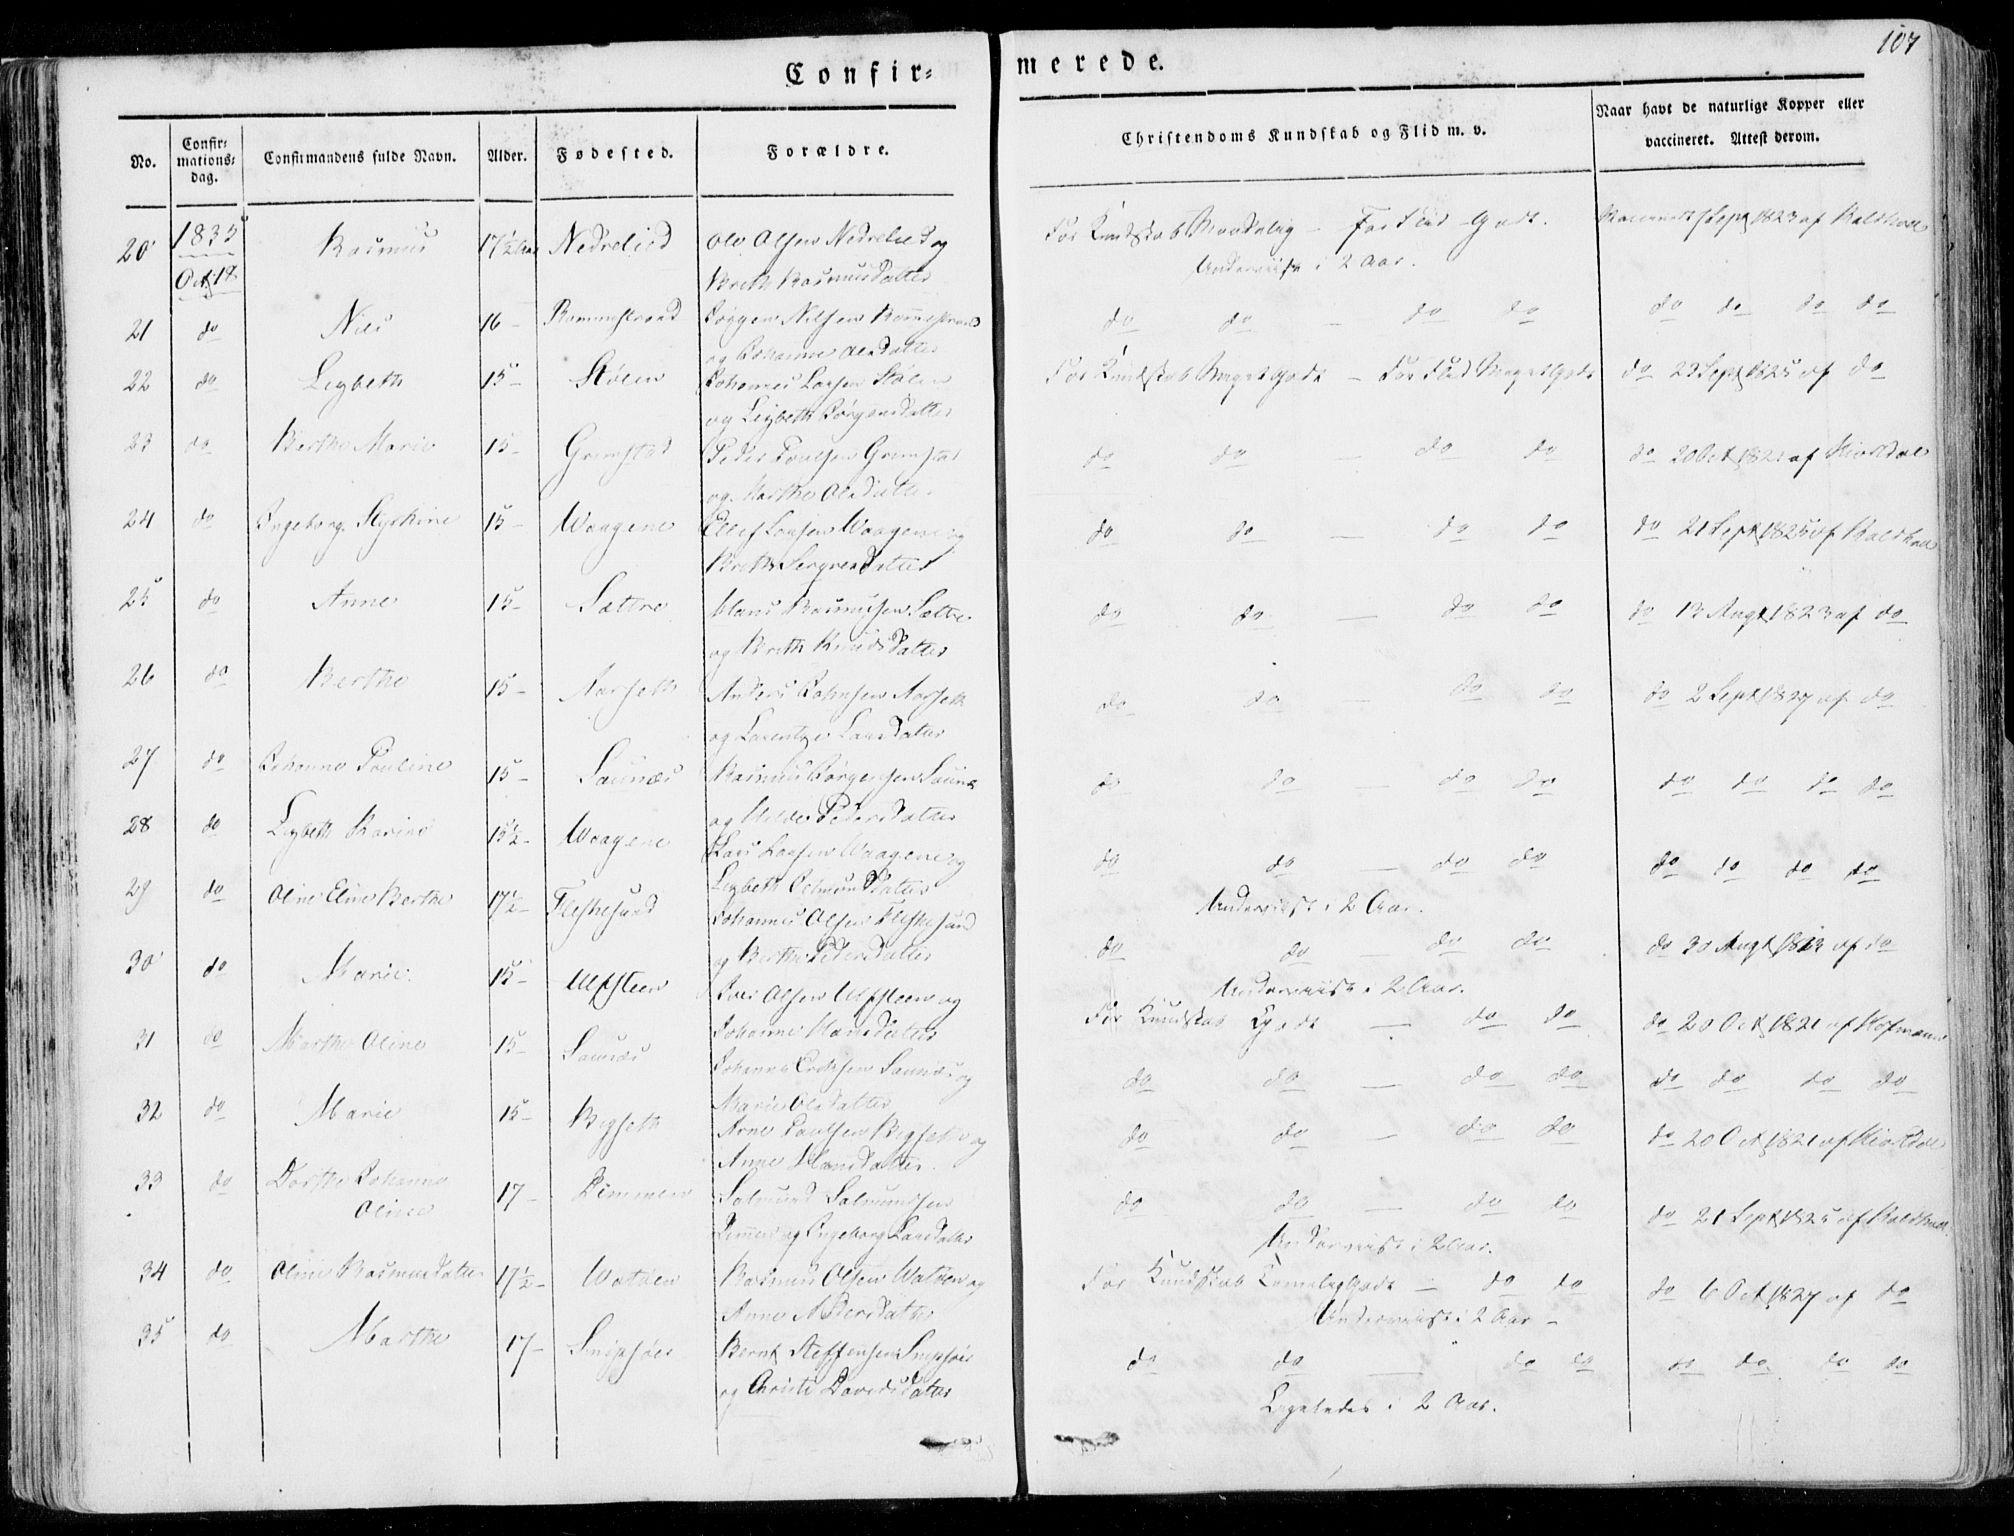 107
Confir- merede.
No. Confirmations-dag. Confirmandens fulde Navn. Alder. Fødested. Forældre. Christendoms Kundskab og Flid m. v. Naar havt de naturlige Kopper eller vaccineret. Attest derom.
20 1835 Oct 18 Rasmus 17½ Aar Nedrelied Ole Olsen Nedrelied og For Kundskab Maadelig – For Flid Godt. Sept 1823 af
Brith Rasmusdatter Underviist i 2 Aar.
21 do Nils 16 – Rammestrand Jørgen Nilsen do do – do do do do do do
og Johanne Olsdatter
22 do Lisbeth 15 – Stølen Johannes Larsen Stølen For Kundskab Meget Godt – For Flid Meget Godt do 23 Sept 1825 af do
og Lisbeth Jørgensdatter
23 do Berthe Marie 15 – Grimstad Peder Poulsen Grimstad do do – do do do 20 Oct 1821 af
og Marthe Olsdatter
24 do Ingeborg 15 – Waagene Ellef Larsen Waagene og do do – do do do 21 Sept 1825 af
Brith
25 do Anne 15 – Sættre Hans Rasmusen Sættre do do – do do do 13 Augt 1823 af do
og Brith Knudsdatter
26 do Berthe 15 – Aarseth Anders Johnsen Aarseth do do – do do do 2 Sept 1827 af do
og Larsdatter
27 do Johanne Pouline 15 – Saunæs Rasmus Jørgensen Saunæs do do – do do do do do do
og Pedersdatter
28 do Lisbeth Karine 15½ – Waagene Lars Larsen Waagene og do do – do do do do do do
Lisbeth Underviist i 2 Aar.
29 do Oline Eline Berthe 17½ – Fleskesund Johannes Olsen Fleskesund do do – do do do 30 Augt af do
og Berthe Pedersdatter Underviist i 2 Aar.
30 do Marie 15 – Ulfsteen Iver Olsen Ulfsteen og For Kundskab Godt – do do do 20 Oct 1821 af Hofmann
Johanne Hansdatter
31 do Marthe Oline 15 – Saunæs Johannes Saunæs og do do – do do do do do do
Marie Olsdatter
32 do Marie 15 – Bigseth Arne Poulsen Bigseth og do do – do do do 20 Oct 1821 af
Anne Hansdatter.
33 do Dorthe Johanne 17 – Dimmen Salmund Salmundsen do do – do do do 21 Sept 1825 af
Oline Dimmen og Ingeborg Larsdatter Underviist i 2 Aar.
34 do Oline Rasmusdatter 17½ – Watøen Rasmus Olsen Watøen og For Kundskab Temelig Godt – do do do 6 Oct 1827 af do
Anne Underviist i 2 Aar –
35 do Marthe 17 – Snipsøer Bernt Steffensen Snipsøer do do – do do do do do do
og Christi Davidsdatter Ligeledes i 2 Aar.